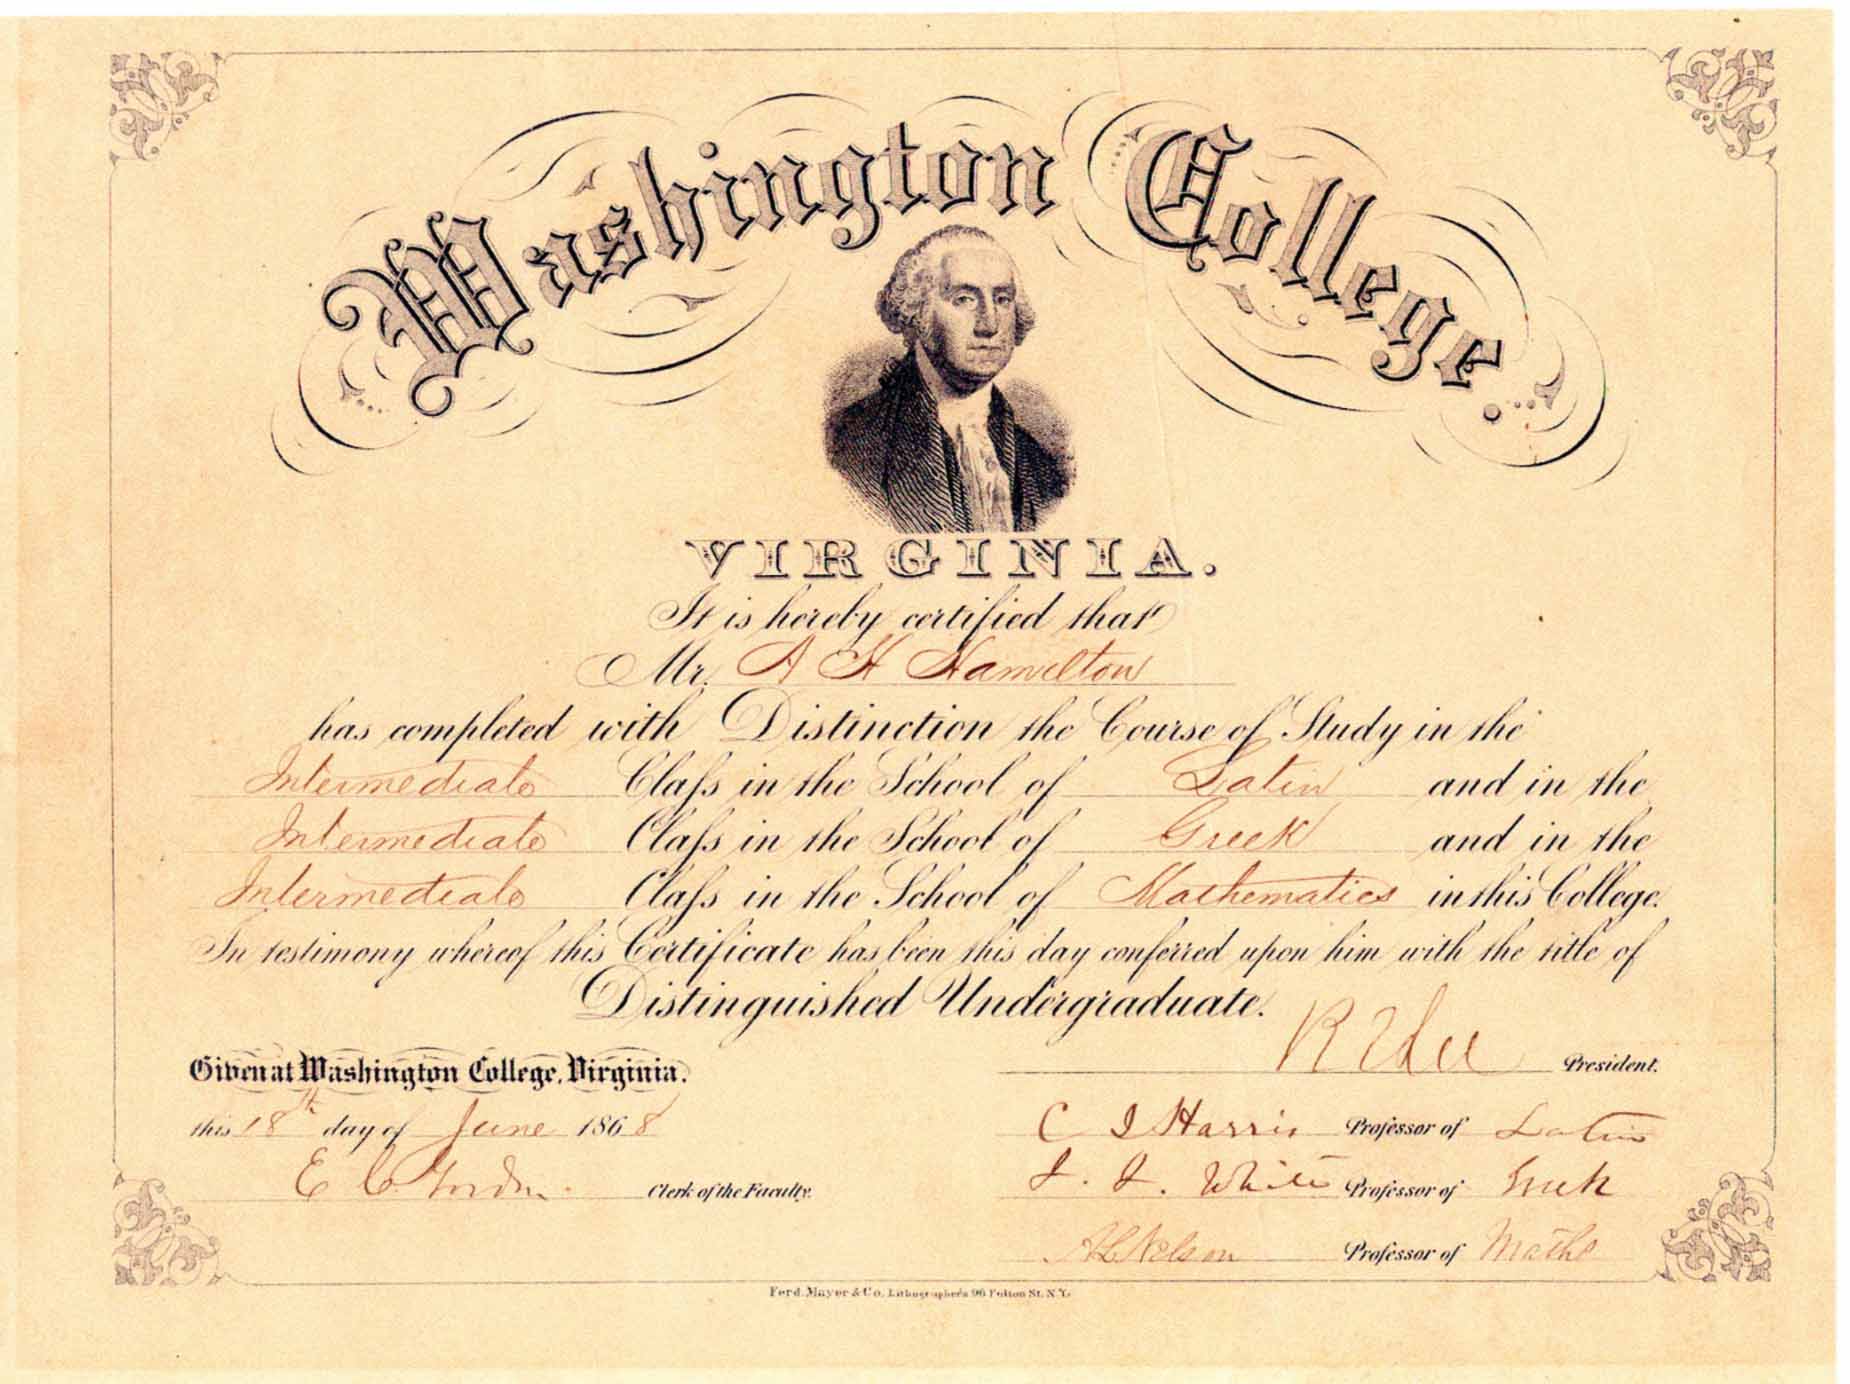 Washington College.
VIRGINIA.
It is hereby certified that
Mr. A H Hamilton
has completed with Distinction the Course of Study in the
Intermediate Claſs in the School of Latin and in the
Intermediate Claſs in the School of Greek and in the
Intermediate Claſs in the School of Mathematics in this College.
In testimony whereof this Certificate has been this day conferred upon him with the title of
Distinguished Undergraduate.
R E Lee President.
Given at Washington College, Virginia.
this 18th day of June 1868
C J Harris Professor of Latin
E C Gordon. Clerk of the Faculty.
J. J. White Professor of Greek
A L Nelson Professor of Maths
Ferd. Mayer & Co. Lithographers 96 Fulton St. N.Y.